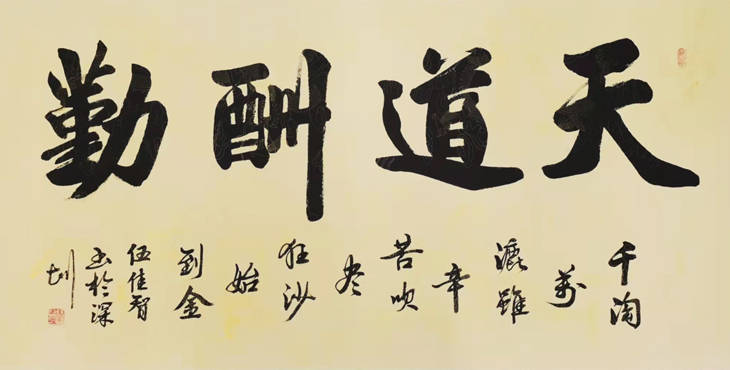 天道酬勤
千淘
萬
漉雖
辛
苦吹
尽
狂沙
始
到金
伍佳智
书於深
圳